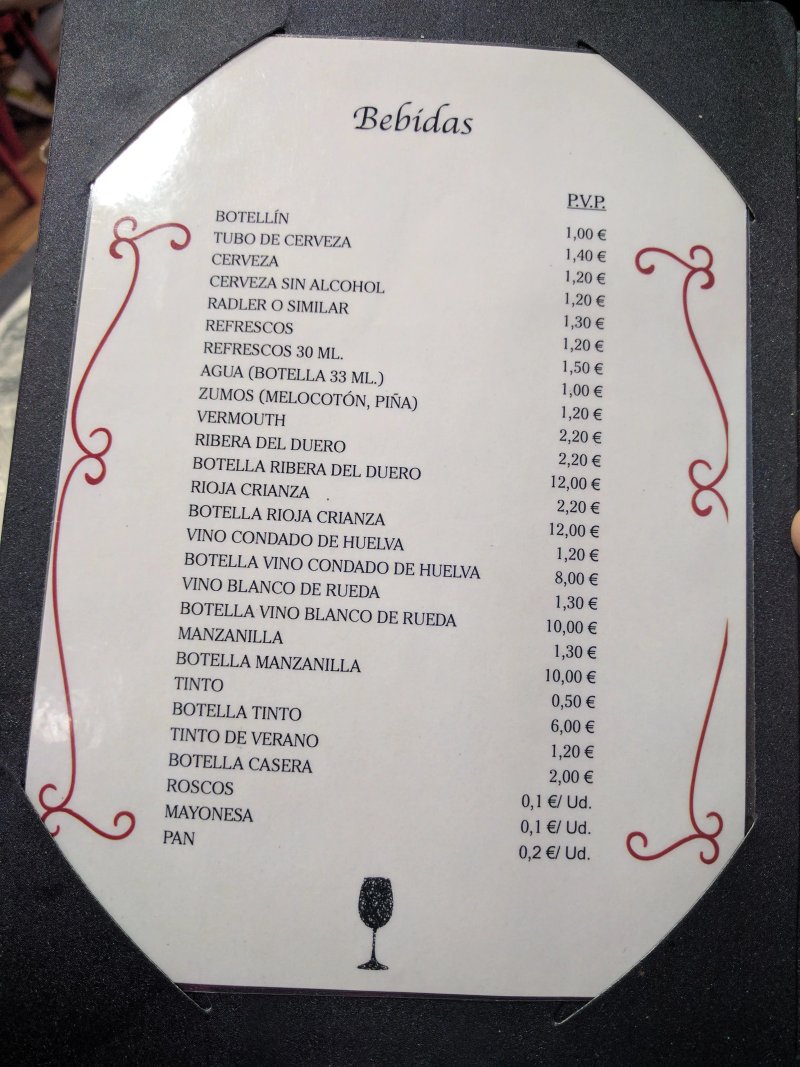 Bebidas
P.V.P.
BOTELLÍN 1,00 €
TUBO DE CERVEZA 1,40 €
CERVEZA 1,20 €
CERVEZA SIN ALCOHOL 1,20 €
RADLER O SIMILAR 1,30 €
REFRESCOS 1,20 €
REFRESCOS 30 ML. 1,50 €
AGUA (BOTELLA 33 ML.) 1,00 €
ZUMOS (MELOCOTÓN, PIÑA) 1,20 €
VERMOUTH 2,20 €
RIBERA DEL DUERO 2,20 €
BOTELLA RIBERA DEL DUERO 12,00 €
RIOJA CRIANZA 2,20 €
BOTELLA RIOJA CRIANZA 12,00 €
VINO CONDADO DE HUELVA 1,20 €
BOTELLA VINO CONDADO DE HUELVA 8,00 €
VINO BLANCO DE RUEDA 1,30 €
BOTELLA VINO BLANCO DE RUEDA 10,00 €
MANZANILLA 1,30 €
BOTELLA MANZANILLA 10,00 €
TINTO 0,50 €
BOTELLA TINTO 6,00 €
TINTO DE VERANO 1,20 €
BOTELLA CASERA 2,00 €
ROSCOS 0,1 €/ Ud.
MAYONESA 0,1 €/ Ud.
PAN 0,2 €/ Ud.